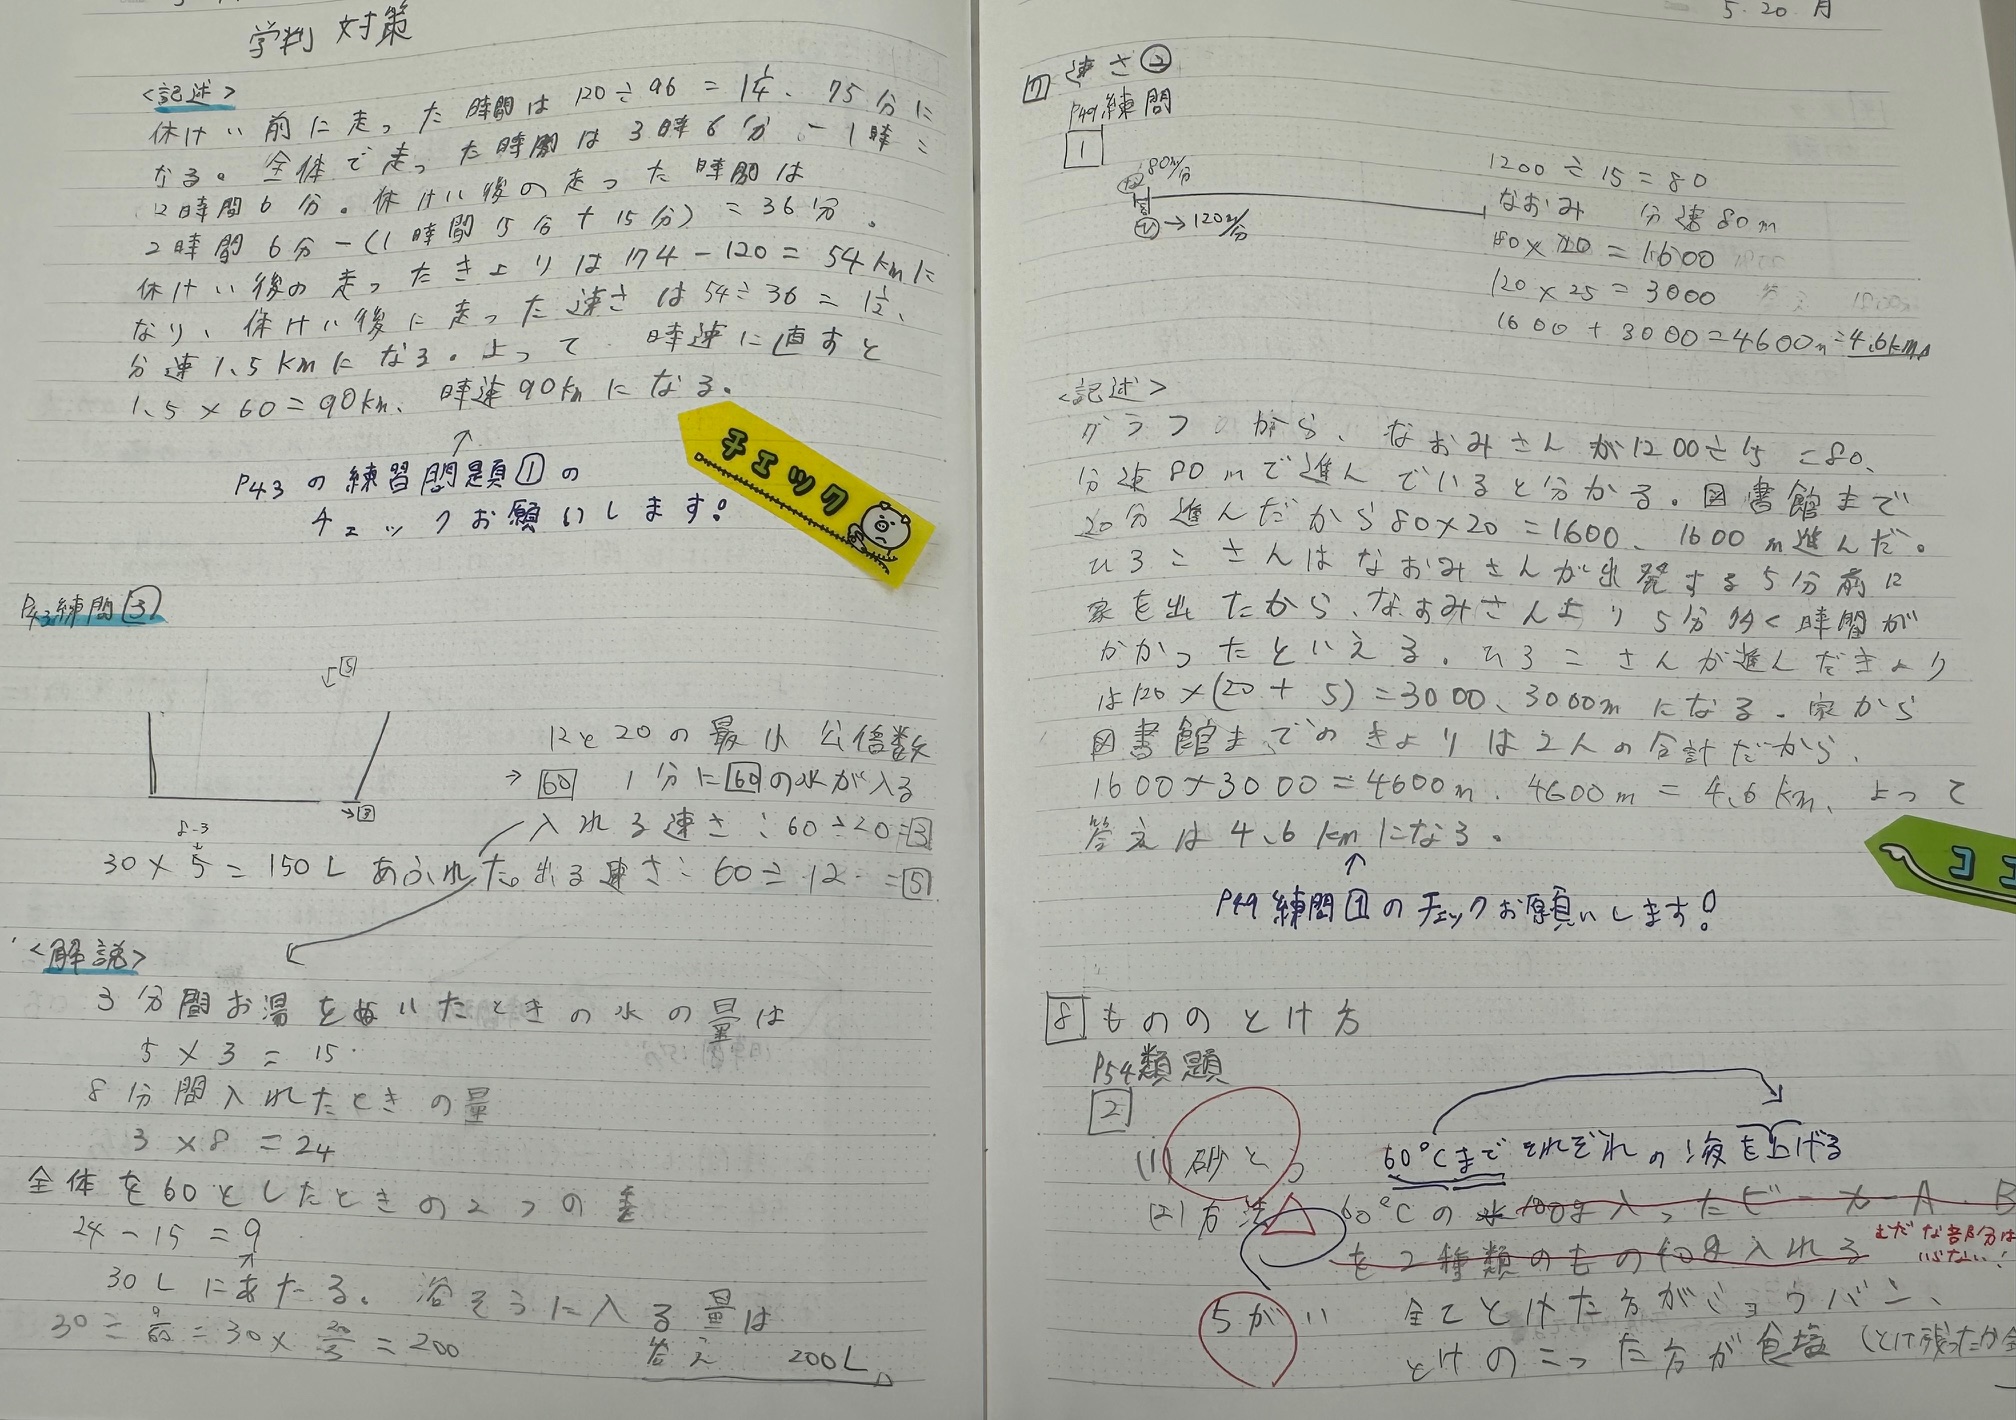 学判 対策
<記述>
休けい前に走った時間は120÷96=1 1/4、75分に
なる。全体で走った時間は3時6分-1時=
2時間6分。休けい後の走った時間は
2時間6分-(1時間15分+15分)=36分。
休けい後の走ったきょりは174-120=54kmに
なり、休けい後に走った速さは54÷36=1 1/2、
分速1.5kmになる。よって 時速に直すと
1.5×60=90km、時速90kmになる。
↑
P43の練習問題①の
チェックお願いします!
チェック
P43練問③
5
→3
12と20の最小公倍数
→60 1分に60の水が入る
入れる速さ:60÷20=3
8-3
30×5=150L あふれた。出る速さ:60÷12=5
<解説>
3分間お湯をぬいたときの水の量は
5×3=15
8分間入れたときの量
3×8=24
全体を60としたときの2つの差
24-15=9
30Lにあたる。浴そうに入る量は
30÷9/60=30×20/3=200
答え 200L
5.20.月
7 速さ②
P49練問
1
80m/分
→120m/分
1200÷15=80
なおみ 分速80m
80×20=1600
120×25=3000
1600+3000=4600m=4.6km
<記述>
グラフから、なおみさんが1200÷15=80、
分速80mで進んでいると分かる。図書館まで
20分進んだから80×20=1600、1600m進んだ。
ひろこさんはなおみさんが出発する5分前に
家を出たから、なおみさんより5分多く時間が
かかったといえる。ひろこさんが進んだきょり
は120×(20+5)=3000、3000mになる。家から
図書館までのきょりは2人の合計だから、
1600+3000=4600m、4600m=4.6km、よって
答えは4.6kmになる。
↑
P49練問1のチェックお願いします!
8 もののとけ方
P54類題
2
(1)砂とう
60℃までそれぞれの液を上げる
(2)方法 60℃の水100g入ったビーカーA、B
を2種類のもの40g入れる
むだな部分は
いらない!
5がい 全てとけた方がミョウバン、
とけのこった方が食塩